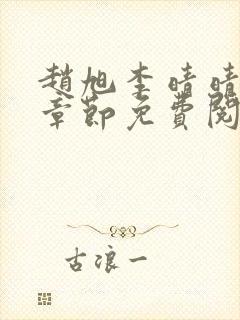 趙旭李晴晴
章節免費閱
古浪一